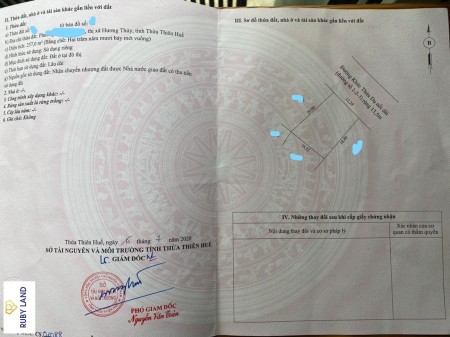 II. Thửa đất, nhà ở và tài sản khác gắn liền với đất
1. Thửa đất:
a) Thửa đất số: tờ bản đồ số:
b) Địa chỉ thửa đất: thị xã Hương Thủy, tỉnh Thừa Thiên Huế
c) Diện tích: 257,0 m² (Bằng chữ: Hai trăm năm mươi bảy mét vuông)
d) Hình thức sử dụng: Sử dụng riêng
đ) Mục đích sử dụng đất: Đất ở tại đô thị
e) Thời hạn sử dụng đất: Lâu dài
g) Nguồn gốc sử dụng đất: Nhận chuyển nhượng đất được Nhà nước giao đất có thu tiền
2. Nhà ở: -/-
3. Công trình xây dựng khác: -/-
4. Rừng sản xuất là rừng trồng: -/-
5. Cây lâu năm: -/-
6. Ghi chú: Không
Thừa Thiên Huế, ngày tháng 7 năm 2020
SỞ TÀI NGUYÊN VÀ MÔI TRƯỜNG TỈNH THỪA THIÊN HUẾ
GIÁM ĐỐC
PHÓ GIÁM ĐỐC
Nguyễn Văn
III. Sơ đồ thửa đất, nhà ở và tài sản khác gắn liền với đất
B
IV. Những thay đổi sau khi cấp giấy chứng nhận
Nội dung thay đổi và cơ sở pháp lý
Xác nhận của cơ
quan có thẩm quyền
RUBY LAND